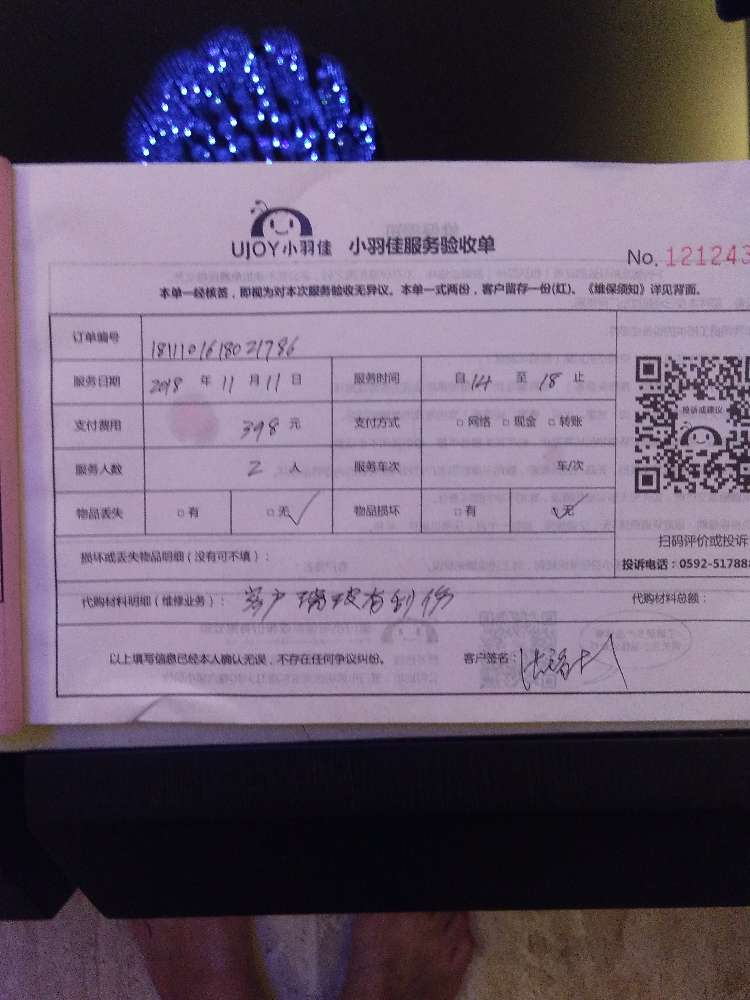 UJOY小羽佳 小羽佳服务验收单
No. 121243
本单一经核签，即视为对本次服务验收无异议。本单一式两份，客户留存一份(红)。《维保须知》详见背面。
订单编号 1811101618021786
服务日期 2018 年 11 月 11 日 服务时间 自 14 至 18 止
支付费用 398 元 支付方式 □ 网络 □ 现金 □ 转账
投诉或建议
服务人数 2 人 服务车次 车/次
物品丢失 □ 有 □ 无 ✓ 物品损坏 □ 有 □ 无 ✓
扫码评价或投诉
损坏或丢失物品明细（没有可不填）：
投诉电话：0592-517888
代购材料明细（维修业务）：客户玻璃有刮伤
代购材料总额：
以上填写信息已经本人确认无误，不存在任何争议纠纷。 客户签名：